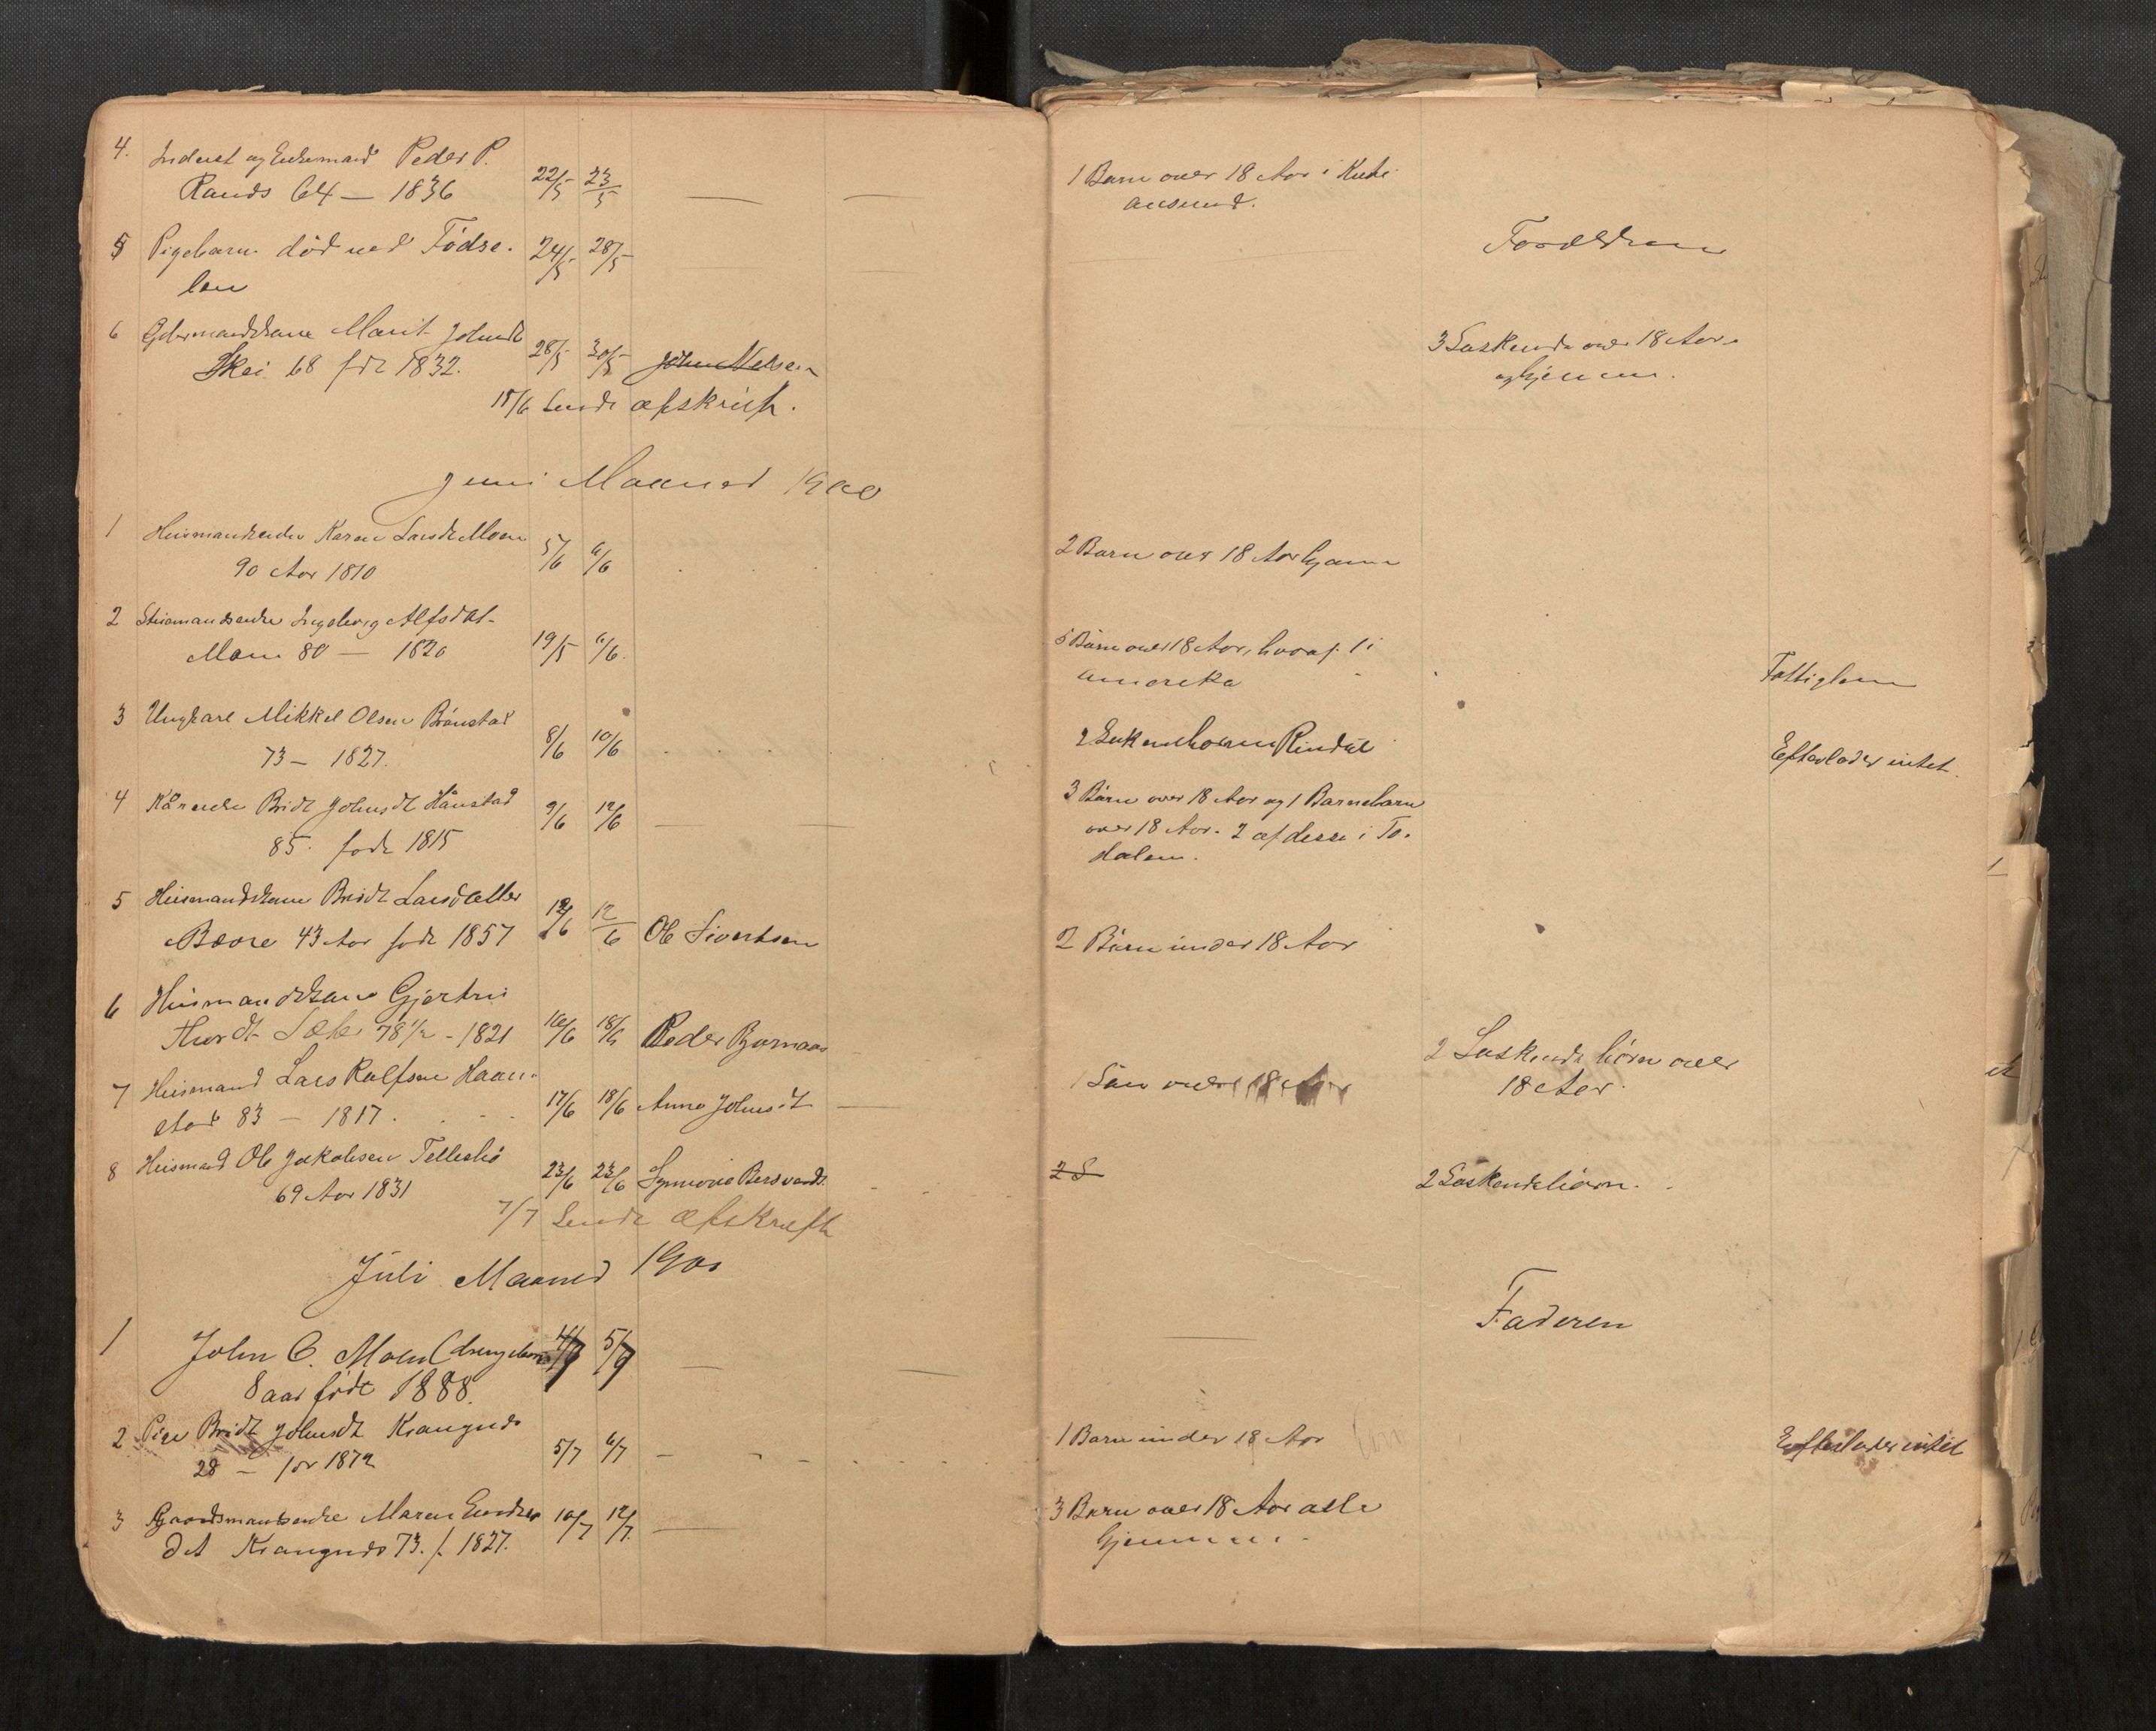 4. Inderst og Enkemand Peder P.
Rands 64 — 1836
22/5 23/5
1 Barn over 18 Aar i Kristi
ansund.
5 Pigebarn død ved Fødse-
len
24/5 28/5
Forældrene
6 Gdrmandskone Marit Johnsdt
Skei 68 fdt 1832.
28/5 30/5 John Nelsen
3 Søskende over 18 Aar
og hjemme.
15/6 sendt afskrift.
Juni Maaned 1900
1 Husmandsenke Karen Larsdt Moen
90 Aar 1810
5/6 6/6
2 Barn over 18 Aar hjemme
2 Husmandsenke Ingeborg Alfsdat-
Moen 80 — 1820
19/5 6/6.
5 Børn over 18 Aar, hvoraf 1 i
Amerika
Fattiglem
3 Ungkarl Mikkel Olsen Brønstad
73 — 1827.
8/6 10/6
2 Søskendbørn Rindal
Efterlader intet.
4 Kårenke Bridt Johnsdt Hånstad
85. født 1815
9/6 12/6
3 Børn over 18 Aar og 1 Barnebarn
over 18 Aar. 2 af desse i To-
dalen.
5 Husmandskone Bridt Larsdatter
Bævre 43 Aar født 1857
12/6 12/6 Ole Sivertsen
2 Børn under 18 Aar
6 Husmandskone Gjertru
78 1/2 - 1821
16/6 18/6 Peder Bjørnaas
2 Søskendebørn over
18 Aar.
7 Husmand Lars Rolfsen Haan-
stad 83 — 1817.
17/6 18/6 Anne Johnsdt
1 Søn over 18 Aar
8 Husmand Ole Jakobsen Telleshø
69 Aar 1831
23/6 23/6
2 S
2 Søskendebørn.
7/7 Sendt afskrift
Juli Maaned 1900
1 John O. Moen (drengebarn)
8 aar født 1888.
4/7 5/7
Faderen
2 Pige Bridt Johnsdt Krangnes
28 — før 1872
5/7 6/7
1 Barn under 18 Aar
Efterlader intet
3 Gaardsmandsenke Maren Endres
dat Krangnes 73. f. 1827.
10/7 12/7.
3 Børn over 18 Aar alle
hjemme.